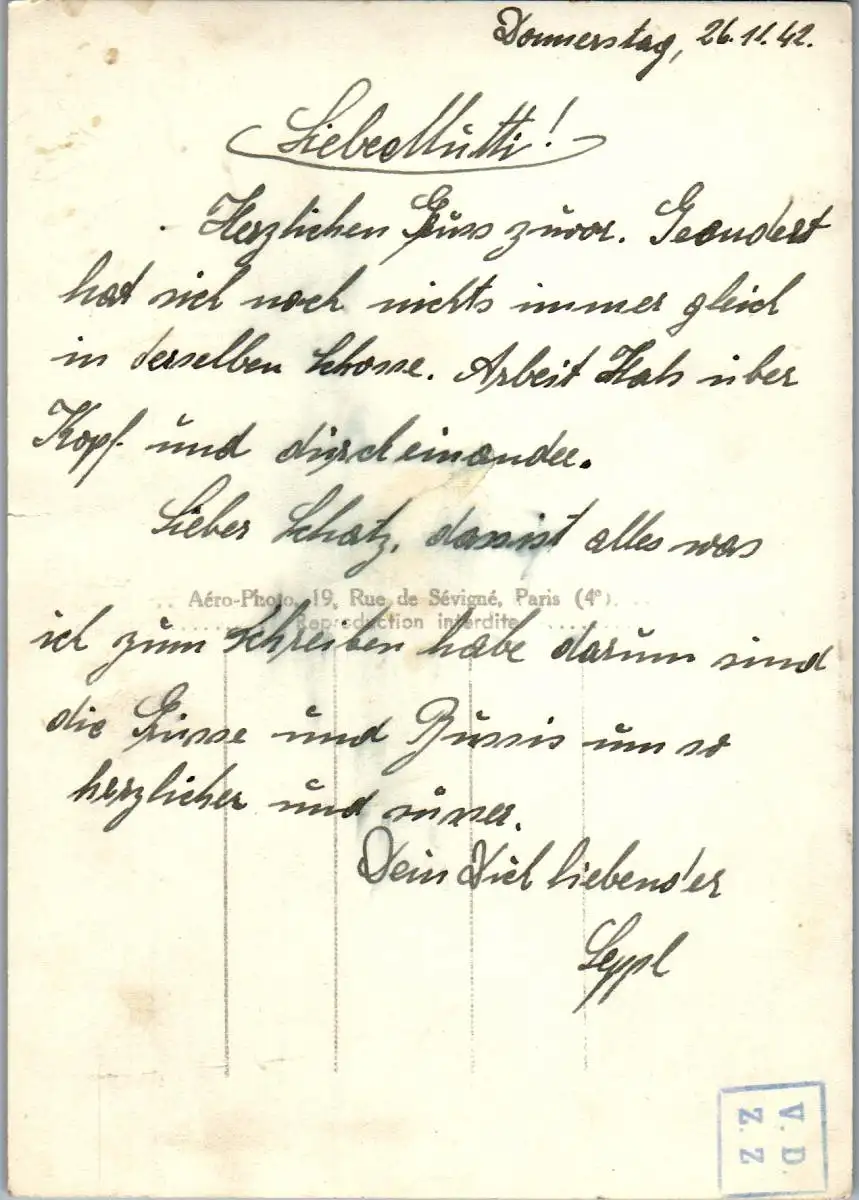 Donnerstag, 26.11.42.
Liebe Mutti!
Herzlichen Gruss zuvor. Geändert
hat sich noch nichts immer gleich
in derselben Schose. Arbeit Hals über
Kopf und durcheinander.
Lieber Schatz, dass ist alles was
Aéro-Photo, 19, Rue de Sévigné, Paris (4e).
Reproduction interdite
ich zum Schreiben habe darum sind
die Grüsse und Bussis um so
herzlicher und süsser.
Dein Dich liebender
Seppl
V. D.
Z. Z